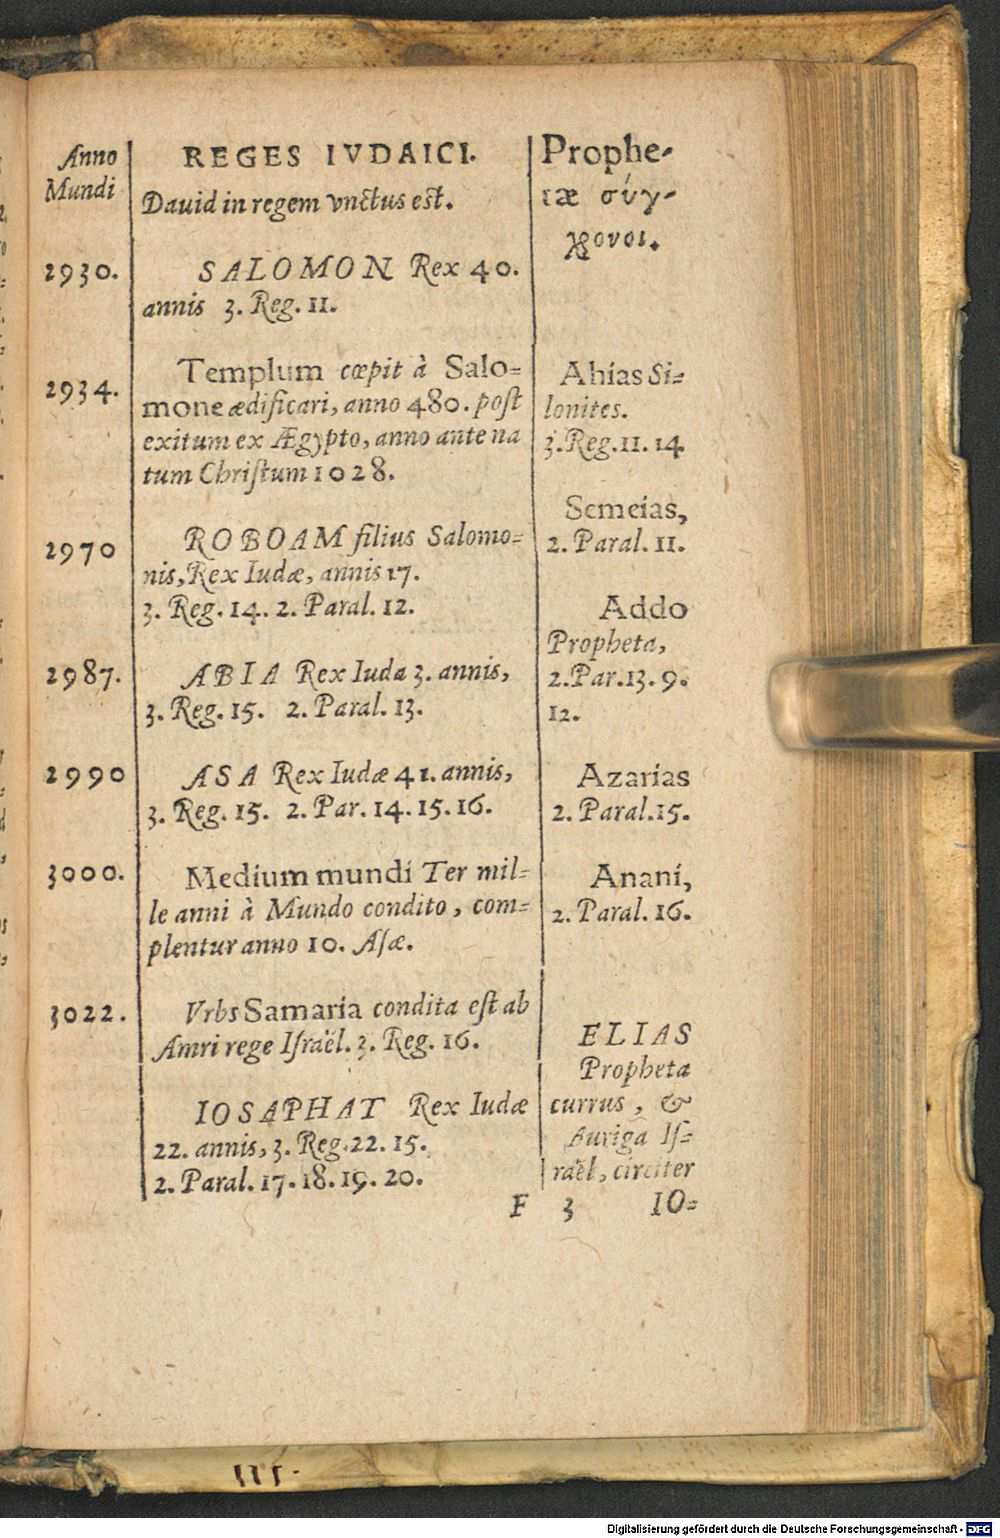 Anno
Mundi
REGES IVDAICI.
Dauid in regem vnctus est.
Prophe-
tæ σύγ-
χρονοι.
2930.
SALOMON Rex 40.
annis 3. Reg. 11.
2934.
Templum cœpit à Salo-
mone ædificari, anno 480. post
exitum ex Ægypto, anno ante na
tum Christum 1028.
Ahias Si-
lonites.
3. Reg. 11. 14.
Semeias,
2. Paral. 11.
2970
ROBOAM filius Salomo-
nis, Rex Iudæ, annis 17.
3. Reg. 14. 2. Paral. 12.
Addo
Propheta,
2. Par. 13. 9.
12.
2987.
ABIA Rex Iuda 3. annis,
3. Reg. 15. 2. Paral. 13.
2990
ASA Rex Iudæ 41. annis,
3. Reg. 15. 2. Par. 14. 15. 16.
Azarias
2. Paral. 15.
3000.
Medium mundi Ter mil-
le anni à Mundo condito, com-
plentur anno 10. Asæ.
Anani,
2. Paral. 16.
3022.
Vrbs Samaria condita est ab
Amri rege Israël. 3. Reg. 16.
IOSAPHAT Rex Iudæ
22. annis, 3. Reg. 22. 15.
2. Paral. 17. 18. 19. 20.
ELIAS
Propheta
currus, &
Auriga Is-
raël, circiter
F 3 IO-
III.
Digitalisierung gefördert durch die Deutsche Forschungsgemeinschaft - DFG